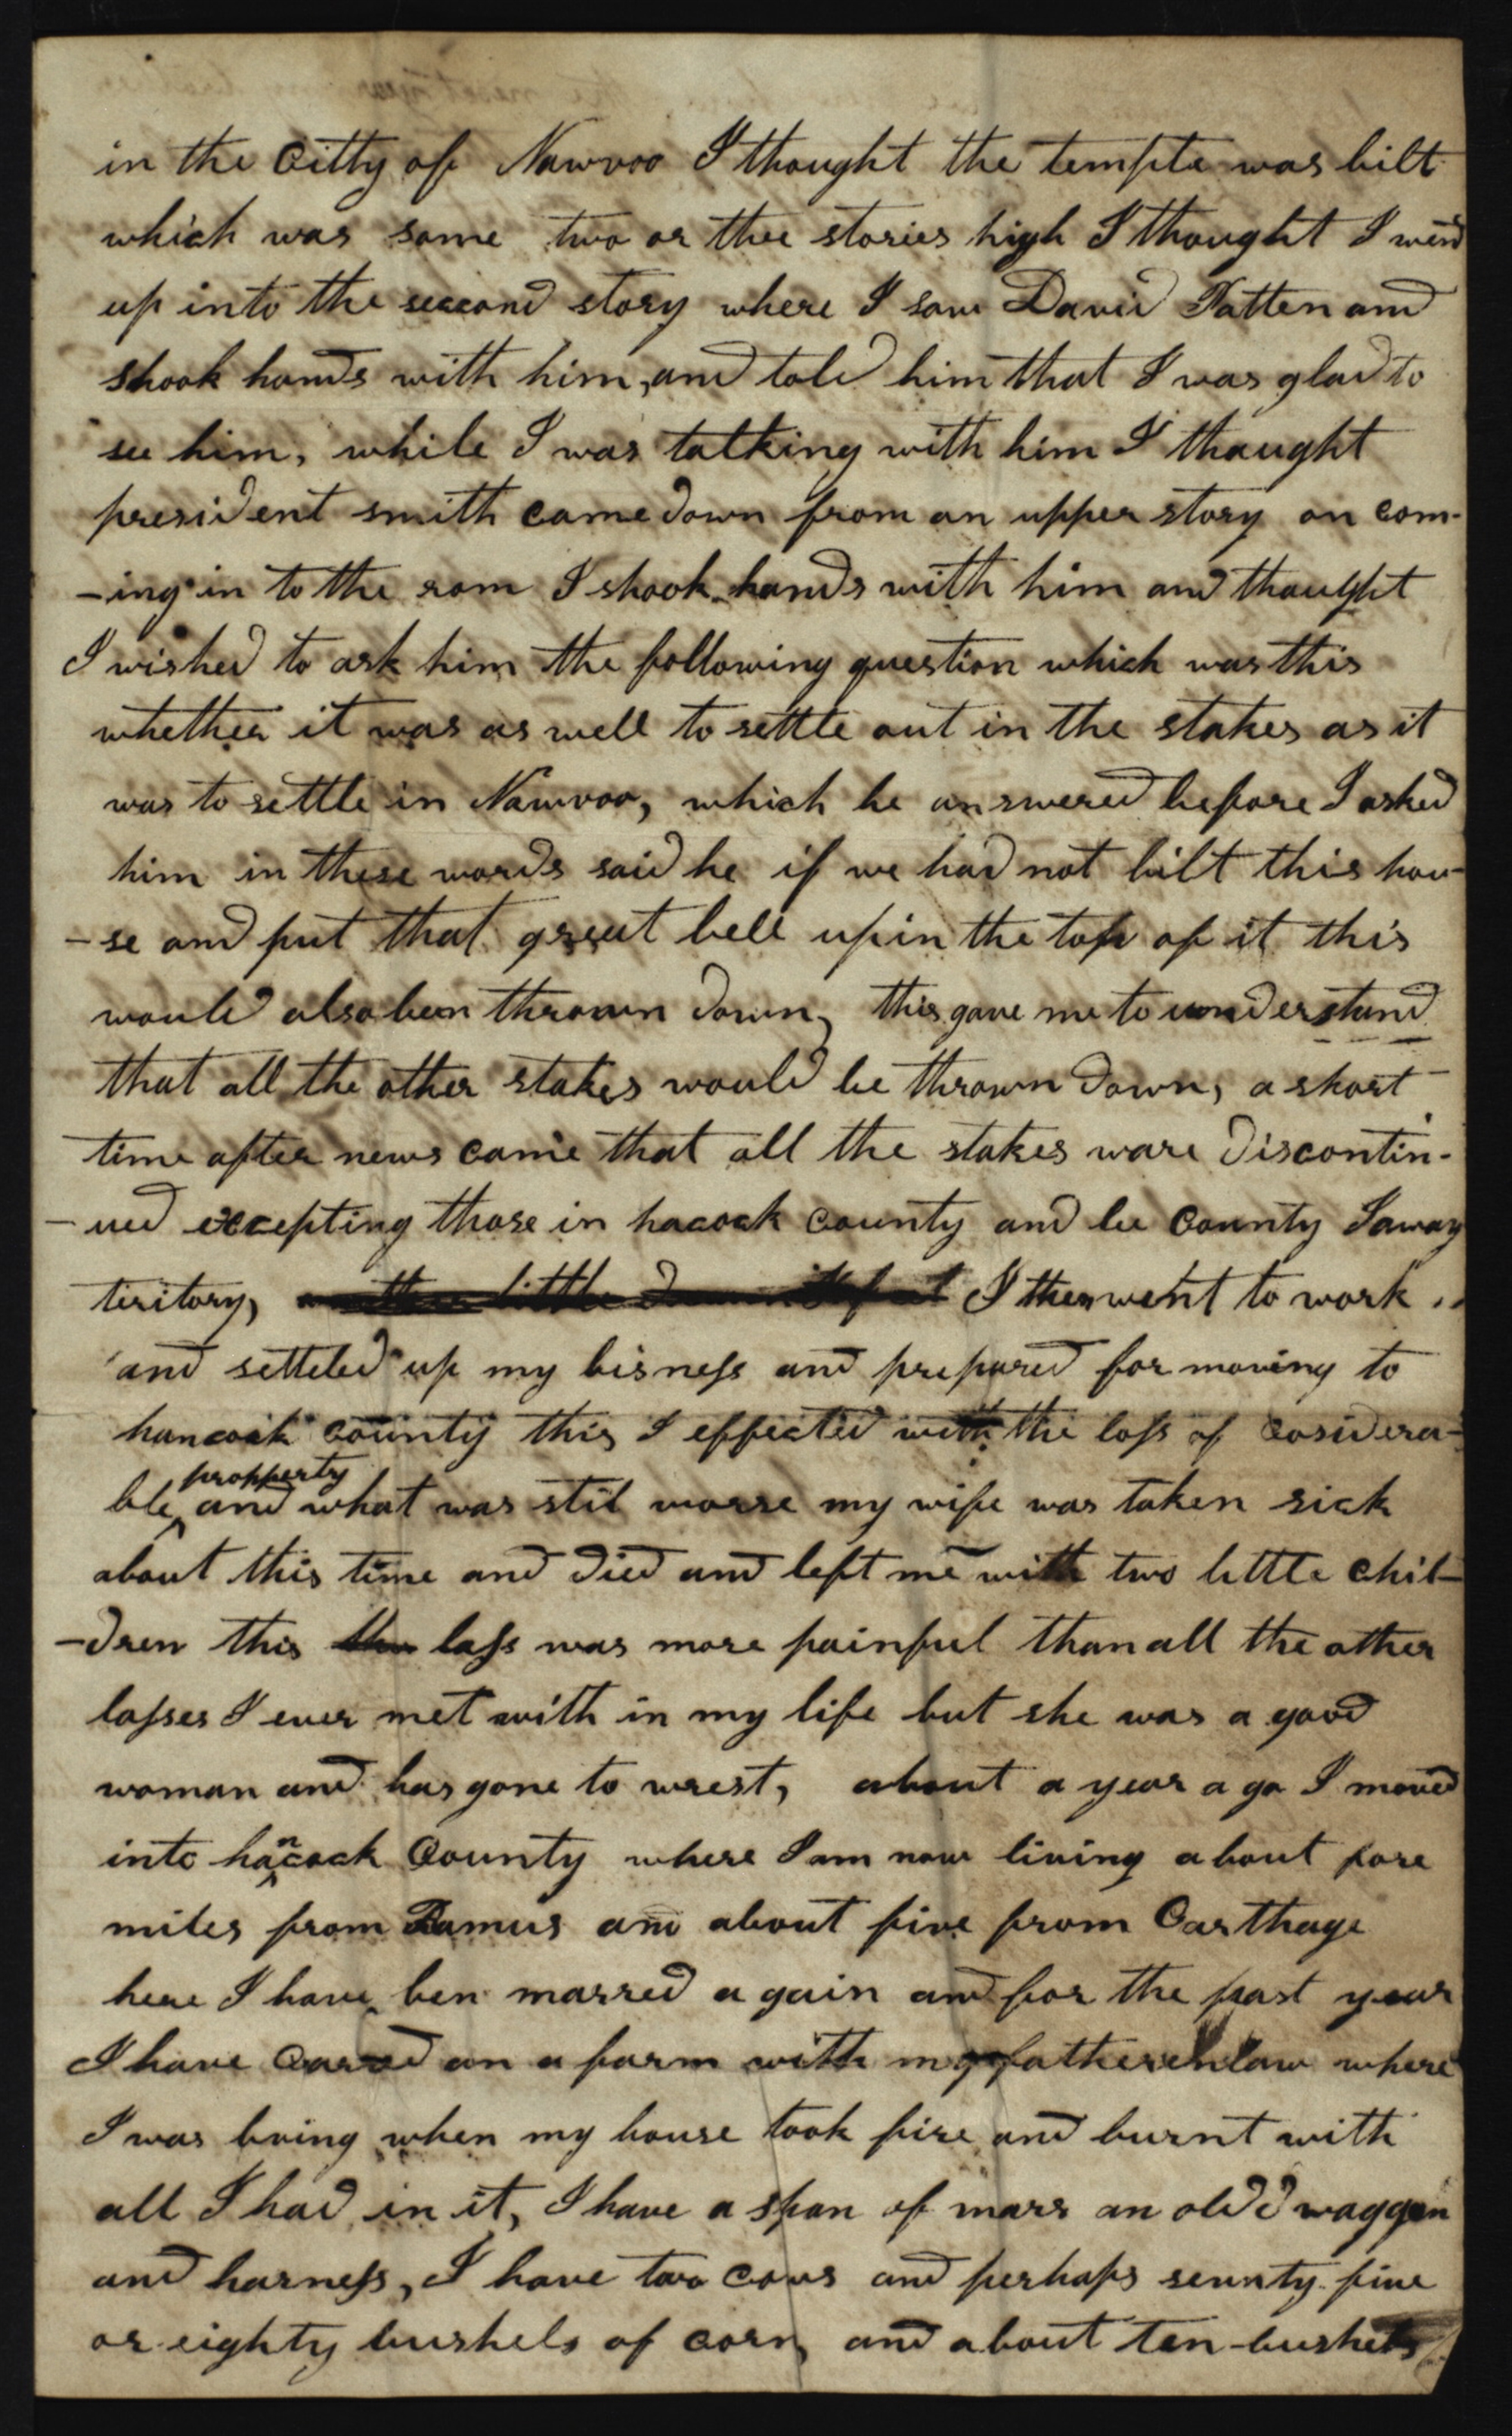 in the Citty of Nawvoo I thought the temple was bilt
which was some two or thee stories high I thought I wend
up into the seccond story where I saw David Patten and
shook hands with him, and told him that I was glad to
see him, while I was talking with him I thought
president smith came down from an upper story on com-
-ing in to the rom I shook hands with him and thought
I wished to ask him the following question which was this
whether it was as well to settle out in the stakes as it
was to settle in Nawvoo, which he answered before I asked
him in these words said he if we had not bilt this hou-
-se and put that great bell up in the top of it this
would also ben thrown down, this gave me to understand
that all the other stakes would be thrown down, a short
time after news came that all the stakes ware discontin-
-ued excepting those in hacock county and lee County Iaway
teritory, I then went to work
and setteled up my bisness and prepared for moving to
hancock county this I effected with the loss of Cosidera-
ble propperty and what was stil worse my wife was taken sick
about this time and died and left me with two little chil-
-dren this loss was more painful than all the other
losses I ever met with in my life but she was a good
woman and has gone to wrest, about a year a go I moved
into hancock County where I am now living about fore
miles from Ramus and about five from Carthage
here I have ben marred a gain and for the past year
I have Carred on a farm with my father in law where
I was living when my house took fire and burnt with
all I had in it, I have a span of mars an old waggon
and harness, I have two cows and perhaps seunty five
or eighty bushels of corn, and about ten bushels